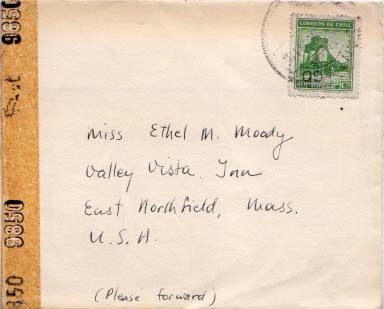 CORREOS DE CHILE
Miss Ethel M. Moody
Valley Vista Inn
East Northfield, Mass.
U.S.A.
(Please forward)
9850
9850